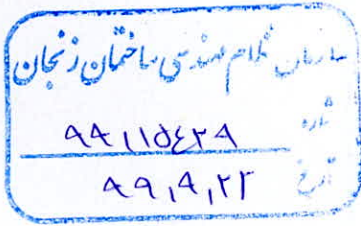 سازمان نظام مهندسی ساختمان زنجان
شماره ۹۹,۱۵۴۲۹
تاریخ ۹۹,۹,۲۳